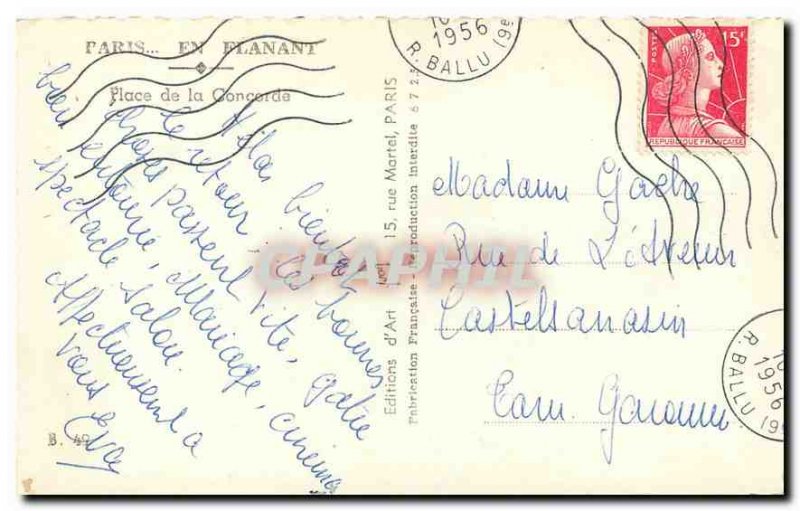 PARIS... EN FLANANT
Place de la Concorde
Hélas bientôt
le retour. Les bonnes
choses passent vite, gatée
bien entourée, Mariage, cinéma
spectacle salon.
affectueusement a
vous
Eva
B. 49
Editions d'Art 15, rue Martel, PARIS
Fabrication Française - Reproduction Interdite 6 7 2 5
CPAPHIL
10
1956
R. BALLU (9e
POSTES
15F
REPUBLIQUE FRANÇAISE
Madame Gache
Rue de L'Avenir
Castelsarrasin
Tarn. Garonne
10
1956
R. BALLU (9e